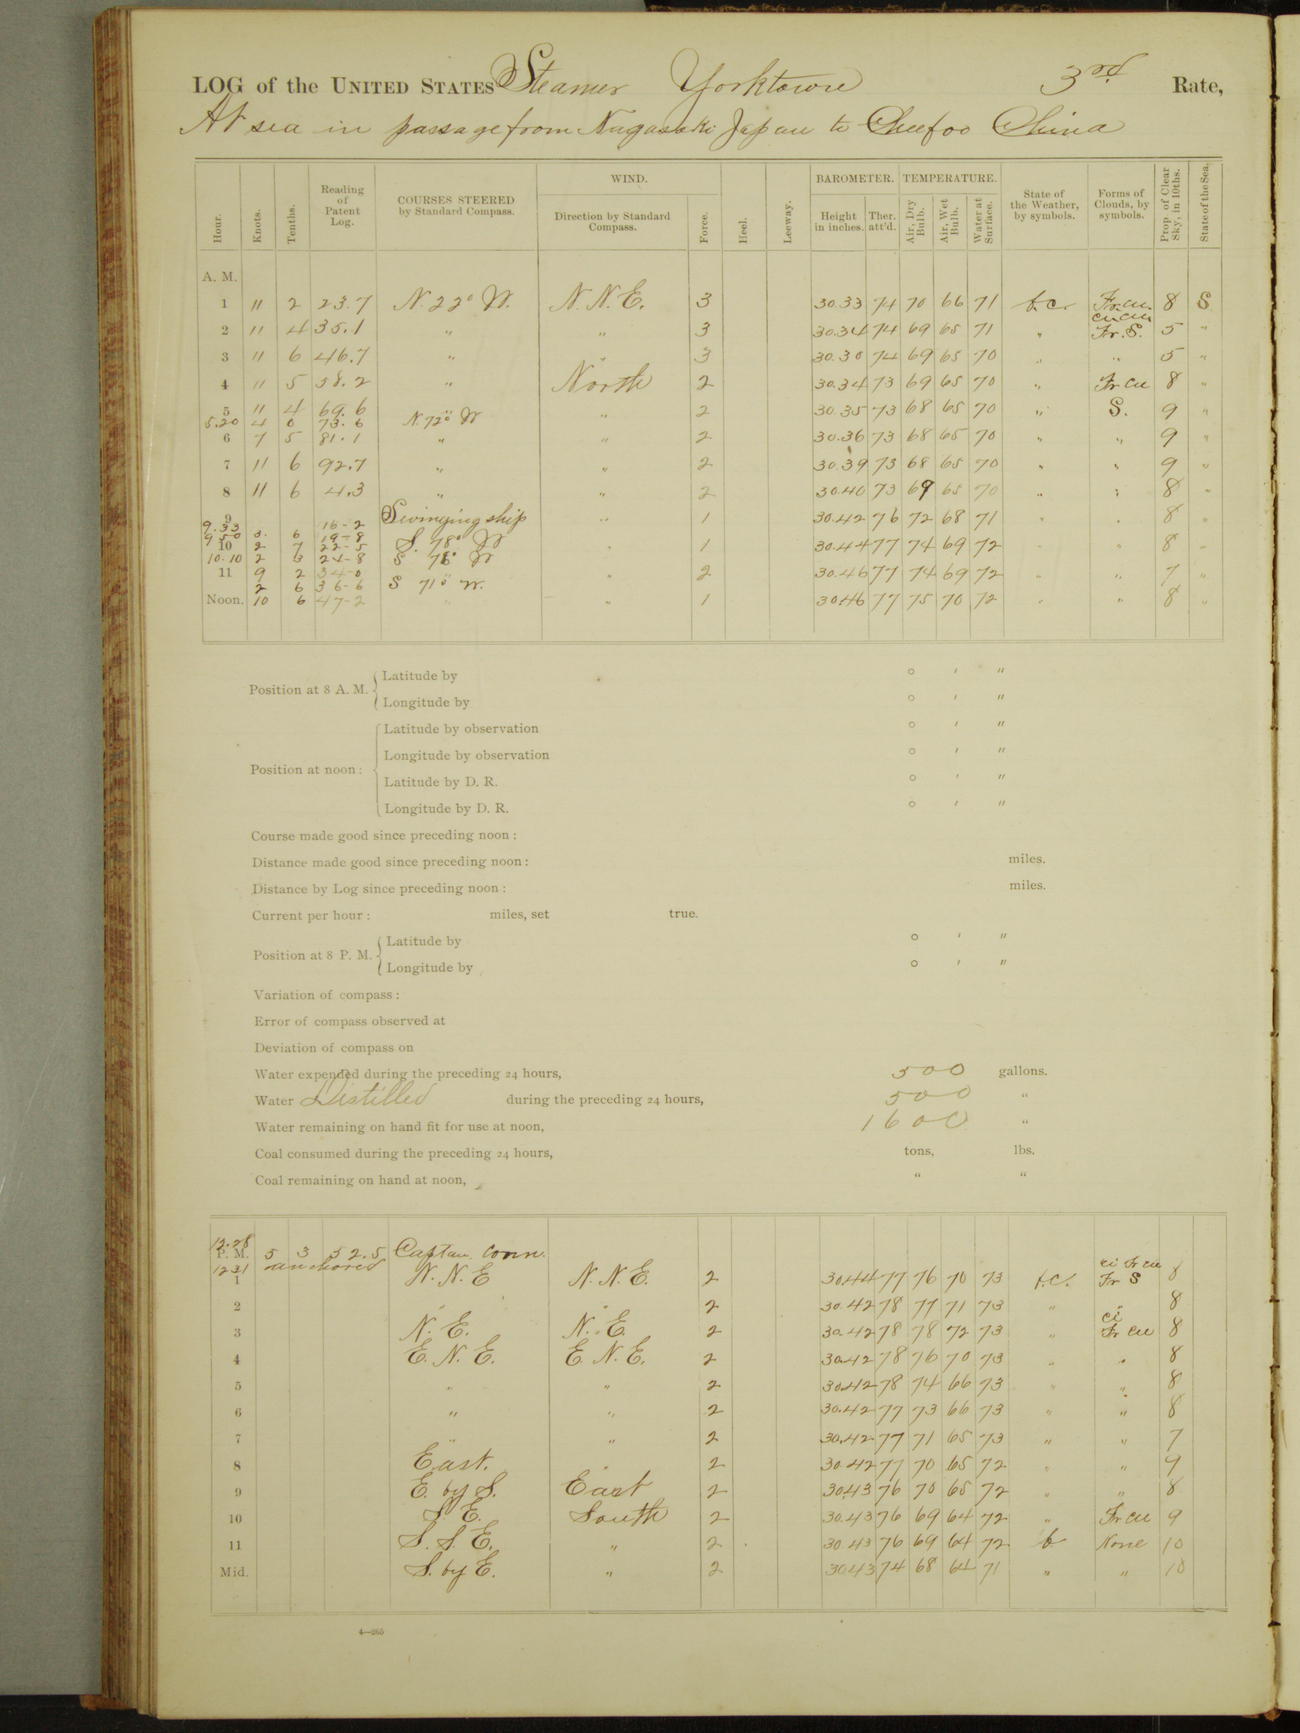 LOG of the UNITED STATES Steamer Yorktown 3rd Rate,
At sea in passage from Nagasaki Japan to Cheefoo China
Hour. Knots. Tenths. Reading of Patent Log. COURSES STEERED by Standard Compass. WIND. Direction by Standard Compass. Force. Heel. Leeway. BAROMETER. Height in inches. Ther. att'd. TEMPERATURE. Air, Dry Bulb. Air, Wet Bulb. Water at Surface. State of the Weather, by symbols. Forms of Clouds, by symbols. Prop. of Clear Sky, in 10ths. State of the Sea.
A. M.
1 11 2 23.7 N. 22° W. N. N. E. 3 30.33 74 70 66 71 b.c. Fr. cu. 8 S
2 11 4 35.1 " " 3 30.34 74 69 65 71 " ci cu Fr. S. 5 "
3 11 6 46.7 " " 3 30.30 74 69 65 70 " " 5 "
4 11 5 58.2 " North 2 30.34 73 69 65 70 " Fr cu 8 "
5 11 4 69.6 " 2 30.35 73 68 65 70 " S. 9 "
5.20 4 0 73.6 N. 72° W
6 7 5 81.1 " " 2 30.36 73 68 65 70 " " 9 "
7 11 6 92.7 " " 2 30.39 73 68 65 70 " " 9 "
8 11 6 4.3 " " 2 30.40 73 69 65 70 " " 8 "
9 Swinging ship " 1 30.42 76 72 68 71 " " 8 "
9.33 16-2
9 50 3. 6 19-8 S. 78° W
10 2 7 22-5 " 1 30.44 77 74 69 72 " " 8 "
10.10 2 3 24-8 S 76° W
11 9 2 34-0 " " 2 30.46 77 74 69 72 " " 7 "
2 6 36-6 S 71° W.
Noon. 10 6 47-2 " " 1 30.46 77 75 70 72 " " 8 "
Position at 8 A. M. Latitude by ° ' "
Longitude by ° ' "
Position at noon: Latitude by observation ° ' "
Longitude by observation ° ' "
Latitude by D. R. ° ' "
Longitude by D. R. ° ' "
Course made good since preceding noon:
Distance made good since preceding noon: miles.
Distance by Log since preceding noon: miles.
Current per hour: miles, set true.
Position at 8 P. M. Latitude by ° ' "
Longitude by ° ' "
Variation of compass:
Error of compass observed at
Deviation of compass on
Water expended during the preceding 24 hours, 500 gallons.
Water Distilled during the preceding 24 hours, 500 "
Water remaining on hand fit for use at noon, 1600 "
Coal consumed during the preceding 24 hours, tons, lbs.
Coal remaining on hand at noon, " "
12.28 5 3 52.5 Captain Conn.
P. M.
12 31 anchored
1 N. N. E N. N. E. 2 30.44 77 76 70 73 b.c. ci Fr cu Fr S 8
2 " " 2 30.42 78 77 71 73 " " 8
3 N. E. N. E. 2 30.42 78 78 72 73 " ci Fr cu 8
4 E. N. E. E. N. E. 2 30.42 78 76 70 73 " " 8
5 " " 2 30.42 78 74 66 73 " " 8
6 " " 2 30.42 77 73 66 73 " " 8
7 " " 2 30.42 77 71 65 73 " " 7
8 East. " 2 30.42 77 70 65 72 " " 9
9 E. by S. East 2 30.43 76 70 65 72 " " 8
10 S. E. South 2 30.43 76 69 64 72 " Fr cu 9
11 S. S. E. " 2 30.43 76 69 64 72 b None 10
Mid. S. by E. " 2 30.43 74 68 64 71 " " 10
4—265